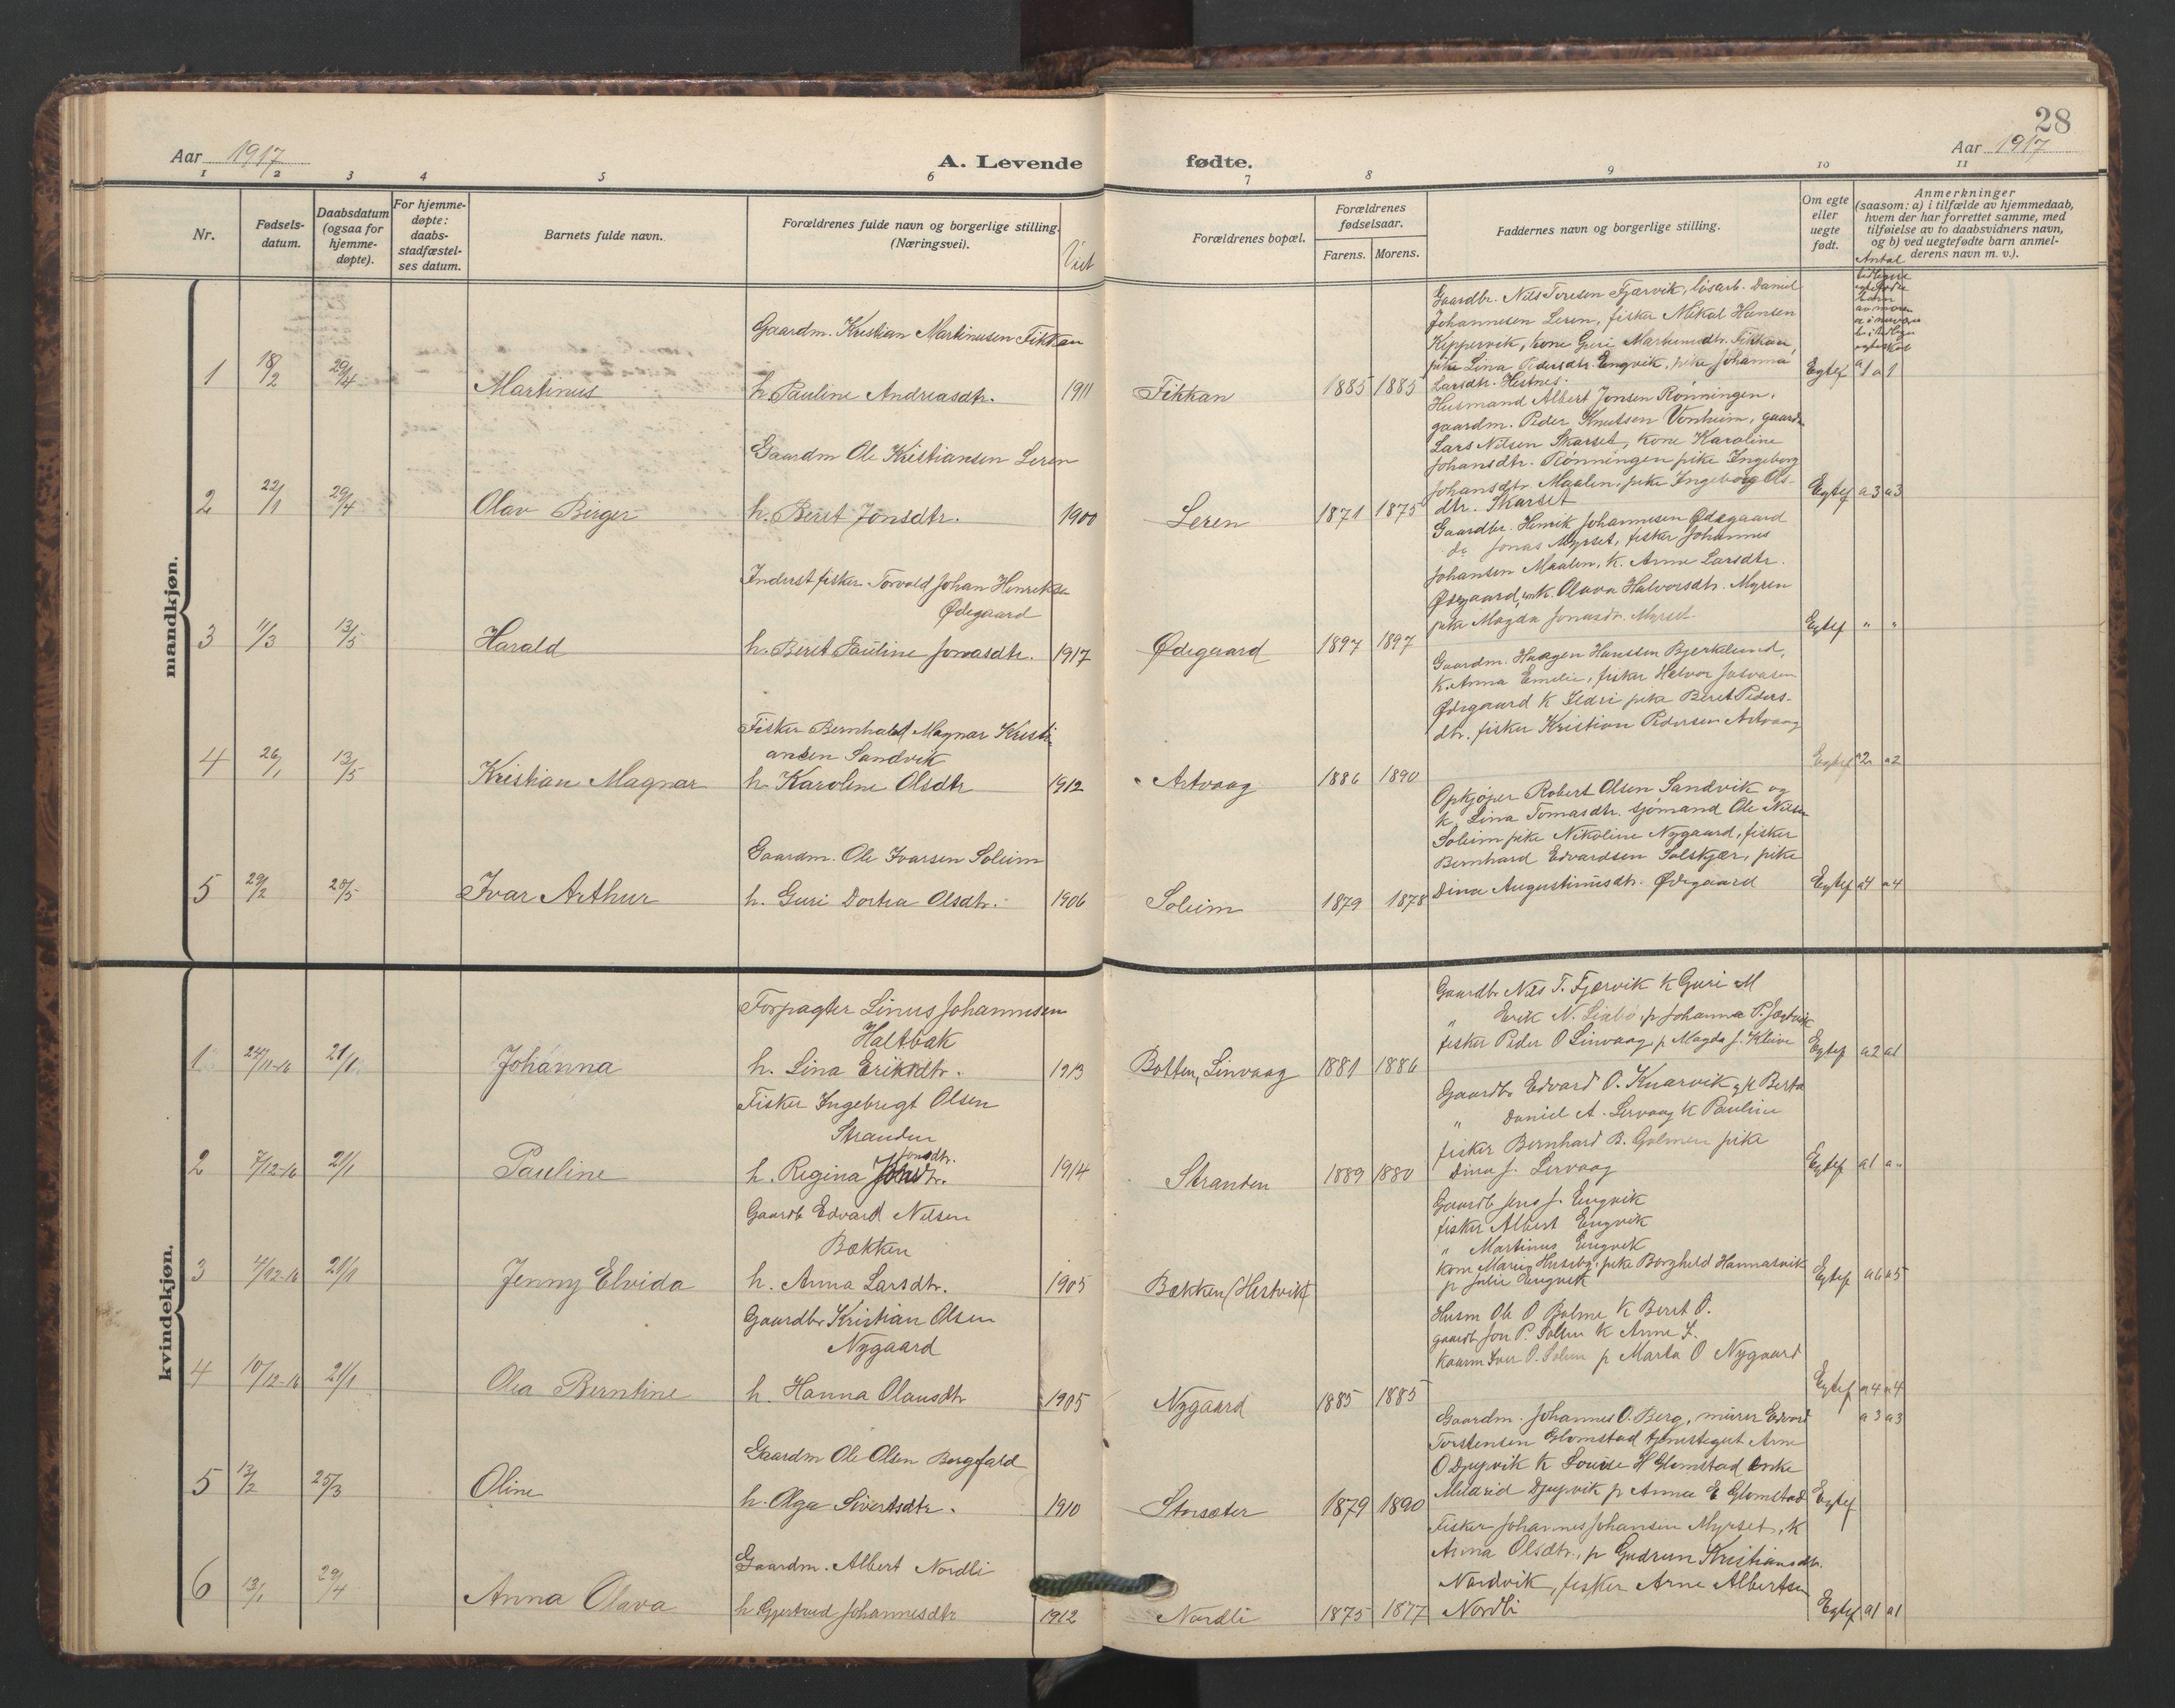 28
Aar 1917
A. Levende fødte.
Aar 1917
1 2 3 4 5 6 7 8 9 10 11
Nr.
Fødsels-
datum.
Daabsdatum
(ogsaa for
hjemme-
døpte).
For hjemme-
døpte:
daabs-
stadfæstel-
ses datum.
Barnets fulde navn.
Forældrenes fulde navn og borgerlige stilling.
(Næringsvei).
Viet
Forældrenes bopæl.
Forældrenes
fødselsaar.
Farens. Morens.
Faddernes navn og borgerlige stilling.
Om egte
eller
uegte
født.
Anmerkninger
(saasom: a) i tilfælde av hjemmedaab,
hvem der har forrettet samme, med
tilføielse av to daabsvidners navn,
og b) ved uegtefødte barn anmel-
derens navn m. v.).
Antal
mandkjøn.
Gaardm. Kristian Martinusen Fikkan
1 18/2 29/4 Martinus h. Pauline Andreasdtr. 1911 Fikkan 1885 1885
Gaardbr. Nils Toresen Fjærvik, løsarb. Daniel
Johannesen Leren, fisker Mikal Hansen
Kippervik, kone Guri Martinusdtr. Fikkan,
pike Lina Pedersdtr. Engvik, pike Johanna
Larsdtr. Hestnes.
Egtef a1 a1
Gaardm Ole Kristiansen Leren
2 22/1 29/4 Olav Birger h. Beret Jonsdtr. 1900 Leren 1871 1875
Husmand Albert Jonsen Rønningen,
gaardm. Peder Knutsen Vonheim, gaardm.
Lars Nilsen Skarset, kone Karoline
Johansdtr. Rønningen pike Ingeborg
Johansdtr. Maalen, pike Ingeborg Ols-
dtr. Skarset
Egtef a3 a3
Inderst fisker Torvald Johan Henriksen
Ødegaard
3 11/3 13/5 Harald h. Beret Pauline Jonasdtr. 1917 Ødegaard 1897 1897
Gaardbr. Henrik Johannesen Ødegaard
do Jonas Myrset, fisker Johannes
Johansen Maalen, k. Anne Larsdtr.
Ødegaard, k. Olava Halvorsdtr. Myren
pike Magda Jonasdtr. Myrset.
Egtef " "
Fisker Bernhard Magnar Kristi-
ansen Sandvik
4 26/1 13/5 Kristian Magnar h. Karoline Olsdtr 1912 Artvaag 1886 1890
Gaardm. Haagen Hanssen Bjerkelund,
k. Anna Emelie, fisker Halvor Josvasen
Ødegaard k Ildri pike Beret Peders-
dtr. fisker Kristian Pedersen Artvaag
Egtef a2 a2
Gaardm. Ole Ivarsen Soleim
5 29/2 20/5 Ivar Arthur h. Guri Dortea Olsdtr. 1906 Soleim 1879 1878
Opkjøper Robert Olsen Sandvik og
k. Lina Tomasdtr. sjømand Ole Nilsen
Soleim pike Nikoline Nygaard, fisker
Bernhard Edvardsen Solskjær, pike
Dina Augustinusdtr. Ødegaard
Egtef a4 a4
kvindekjøn.
Forpagter Linus Johannesen
Haltbak
1 24/11-16 21/1 Johanna h. Lina Eriksdtr. 1913 Botten, Linvaag 1881 1886
Gaardbr Nils T. Fjærvik k Guri M
" Erik N. Liabø, p Johanna P.
fisker Peder O Linvaag, p Magda J. Kleive
Egtef a2 a1
Fisker Ingebregt Olsen
Stranden
2 7/12-16 21/1 Pauline h. Regina Jonsdtr. 1914 Stranden 1889 1880
Gaardbr Edvard O. Knarvik og k Berta
" Daniel A. Lervaag k Pauline
fisker Bernhard B. Golmen pike
Dina J. Lervaag
Egtef a1 a"
Gaardb Edvard Nilsen
Bækken
3 4/12-16 21/1 Jenny Elvida h. Anna Larsdtr. 1905 Bækken (Hestvik)
Gaardb Jens J. Engvik
fisker Albert Engvik
" Martinus Engvik
kone Marie Huseby, pike Borghild Hannasvik
p Julie Engvik
Egtef a6 a5
Gaardbr Kristian Olsen
Nygaard
4 10/12-16 21/1 Olea Berntine h. Hanna Olausdtr 1905 Nygaard 1885 1885
Husm Ole O Bolme k Beret O.
gaardb Jon P. Solem k Anne I.
Kaarm Iver O. Solem p Marta O Nygaard
Egtef a4 a4
Gaardm Ole Olsen Bergfald
5 13/2 25/3 Oline h. Olga Sivertsdtr. 1910 Storsæter 1879 1890
Gaardm. Johannes O. Berg, murer Edvard
Torstensen Glomstad tjenestegut Arne
O Djupvik k Lovise H Glomstad Enke
Mildrid Djupvik p Anna E Glomstad
Egtef a3 a3
Gaardm. Albert Nordli
6 13/1 29/4 Anna Olava h Gjertrud Johannesdtr 1912 Nordli 1875 1877
Fisker Johannes Johansen Myrset, k
Anna Olsdtr., p Gudrun Kristiansdtr.
Nordvik, fisker Arne Albertsen
Nordli
Egtef a1 a1